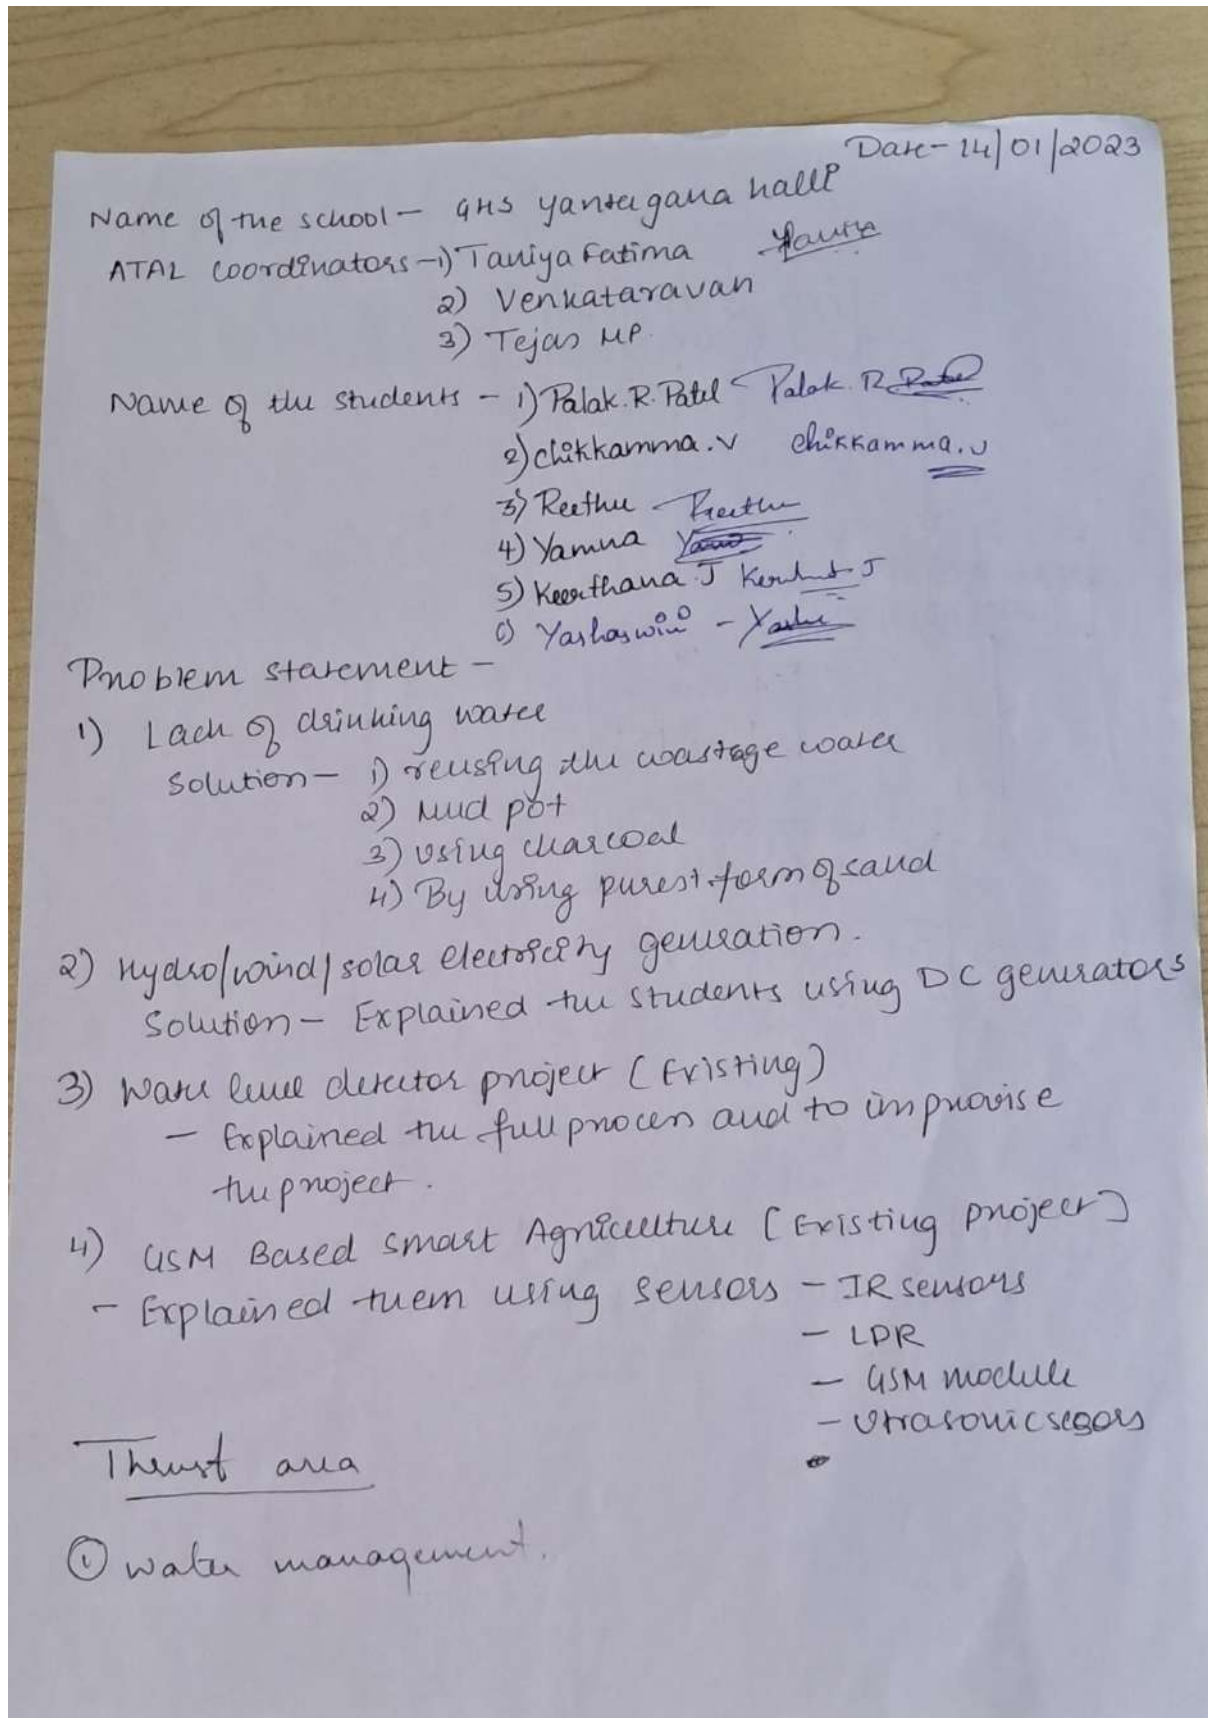 Date- 14/01/2023
Name of the school - GHS Yantagana halli
ATAL Coordinators -1) Taniya Fatima
2) Venkataravan
3) Tejas MP.
Name of the students - 1) Palak.R.Patel - Palak.R Patel
2) Chikkamma.v Chikkamma.v
3) Reethu - Reethu
4) Yamna
5) Keerthana.J
6) Yashaswini -
Problem statement -
1) Lack of drinking water
Solution - 1) reusing the wastage water
2) Mud pot
3) Using charcoal
4) By using purest form of sand
2) Hydro/wind/solar electricity generation.
Solution - Explained the students using DC generators
3) Water level detector project (Existing)
- Explained the full process and to improvise
the project.
4) GSM Based Smart Agriculture [Existing project]
- Explained them using sensors - IR sensors
- LDR
- GSM module
- Utrasonic segors
Thrust area
① water management.